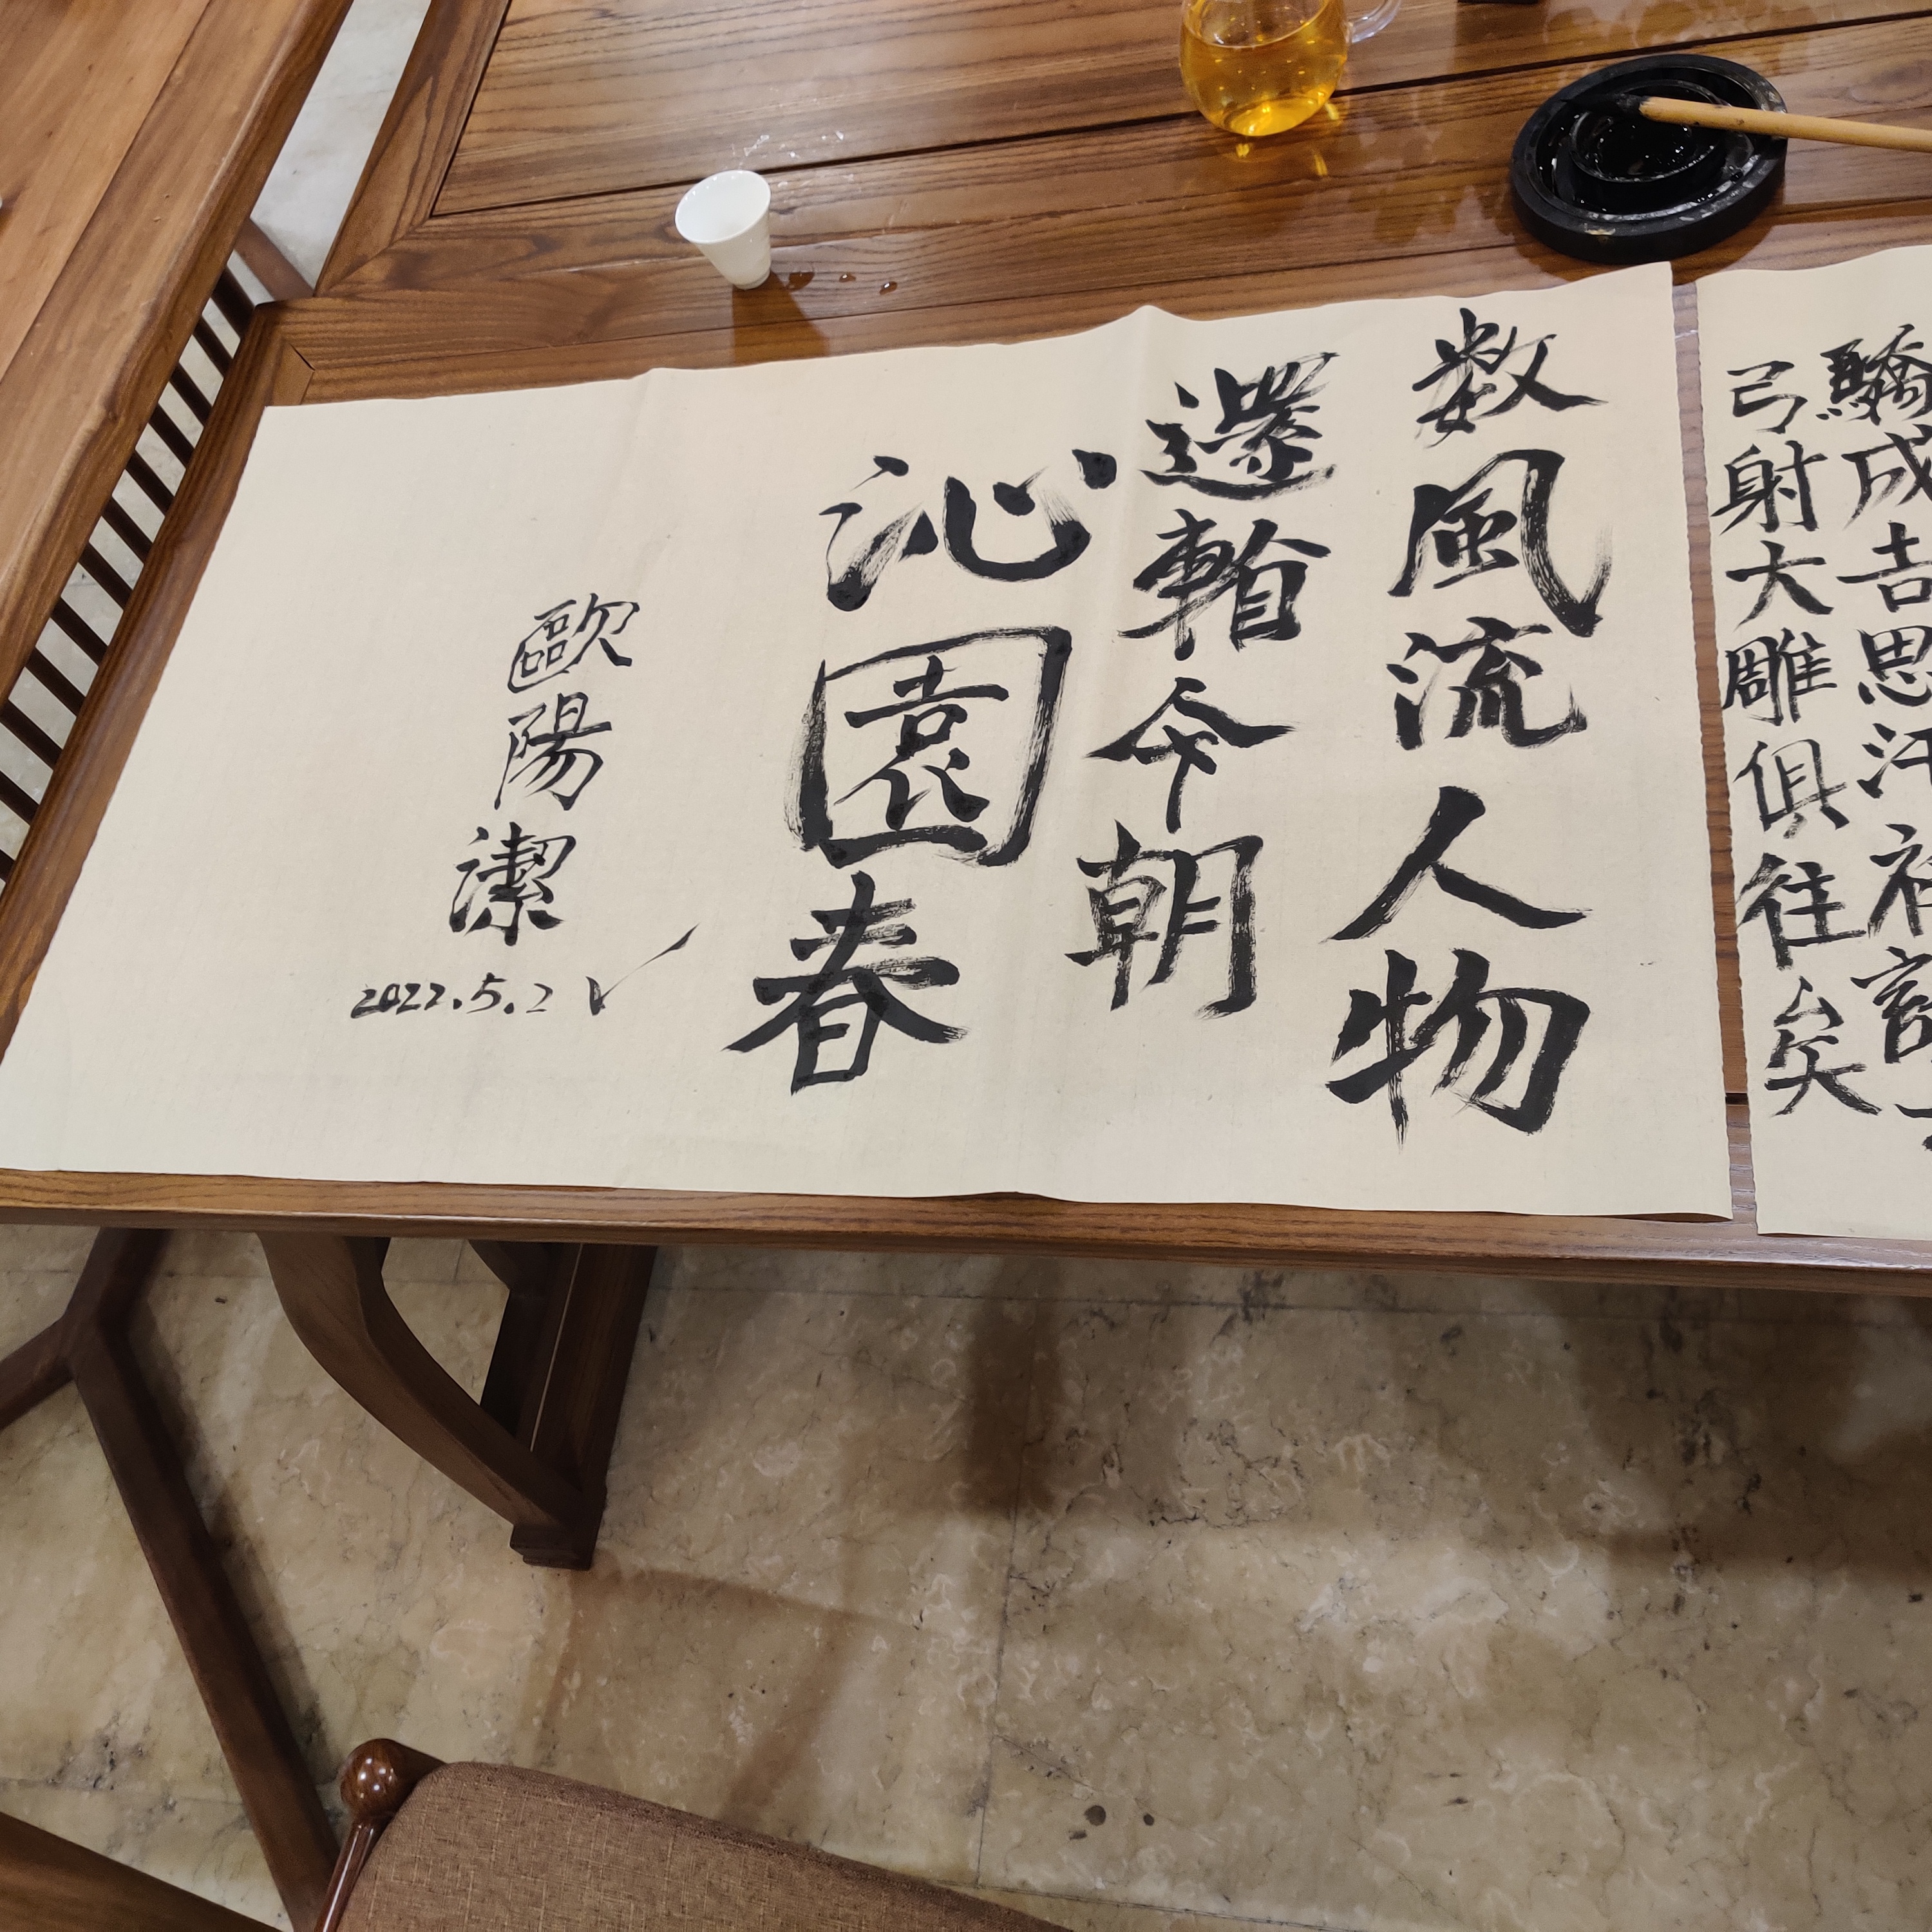 驕成吉思汗
弓射大雕俱往矣
数風流人物
還看今朝
沁園春
歐陽潔
2022.5.2 √